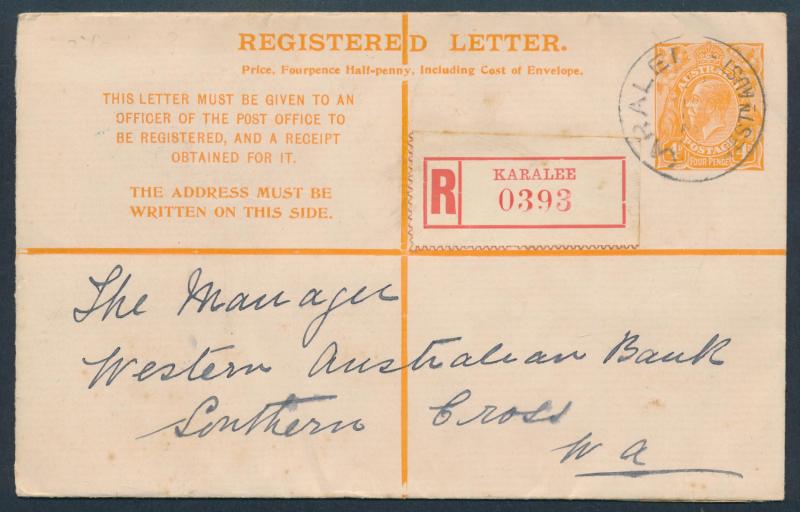 REGISTERED LETTER.
Price, Fourpence Half-penny, Including Cost of Envelope.
THIS LETTER MUST BE GIVEN TO AN
OFFICER OF THE POST OFFICE TO
BE REGISTERED, AND A RECEIPT
OBTAINED FOR IT.
THE ADDRESS MUST BE
WRITTEN ON THIS SIDE.
R
KARALEE
0393
KARALEE
AUSTRALIA
POSTAGE
FOUR PENCE
The Manager
Western Australian Bank
Southern Cross
W A